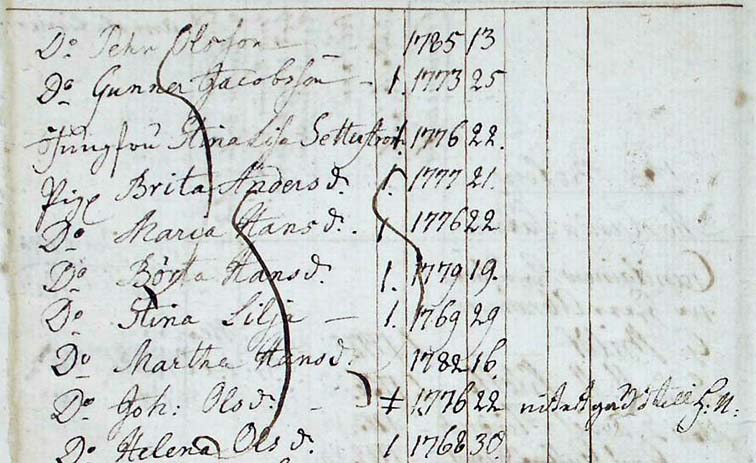 Do Pehr Olsson — 1785 13
Do Gunner Jacobsson — 1. 1773 25
Jungfru Stina Lisa 1. 1776 22.
Pig Brita Andersd. 1. 1777 21.
Do Maria Hansd. 1 1776 22
Do Börta Hansd. 1. 1779 19.
Do Stina Lilja — 1. 1769 29
Do Martha Hansd. 1782 16.
Do Joh: Olsd. — 1776 22
Do Helena Olsd. 1 1768 30.